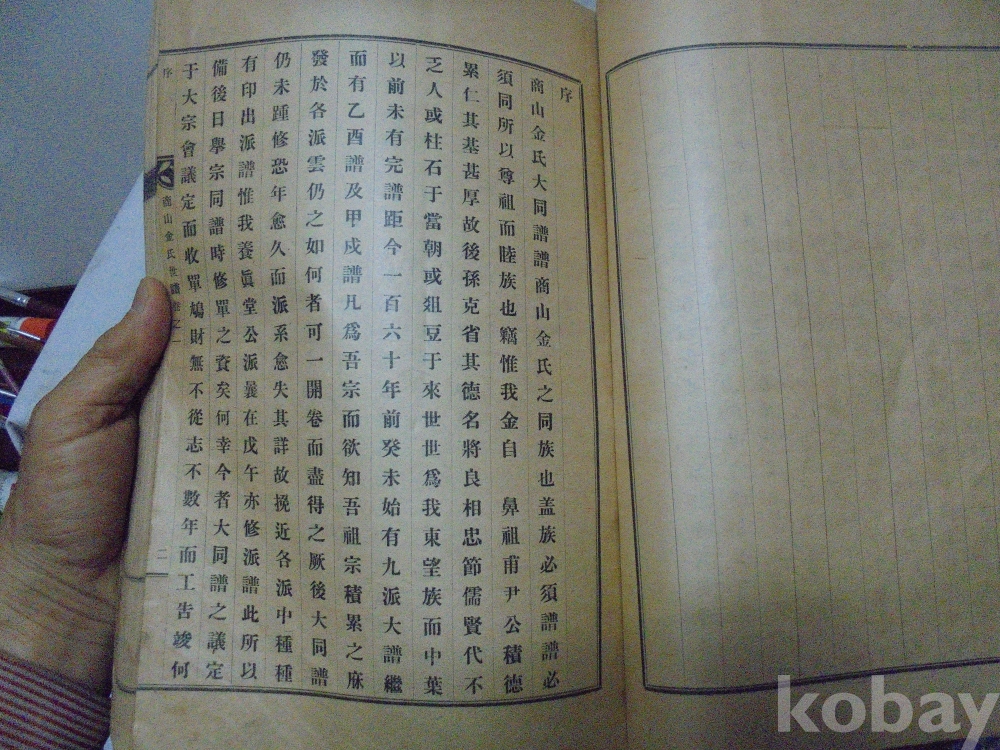 序
商山金氏大同譜譜商山金氏之同族也盖族必須譜譜必
須同所以尊祖而睦族也竊惟我金自 鼻祖甫尹公積德
累仁其基甚厚故後孫克省其德名將良相忠節儒賢代不
乏人或柱石于當朝或俎豆于來世世爲我東望族而中葉
以前未有完譜距今一百六十年前癸未始有九派大譜繼
而有乙酉譜及甲戍譜凡爲吾宗而欲知吾祖宗積累之庥
發於各派雲仍之如何者可一開卷而盡得之厥後大同譜
仍未踵修恐年愈久而派系愈失其詳故挽近各派中種種
有印出派譜惟我養眞堂公派曩在戊午亦修派譜此所以
備後日擧宗同譜時修單之資矣何幸今者大同譜之議定
于大宗會議定而收單鳩財無不從志不數年而工告竣何
序
商山金氏世譜卷之一
二
kobay